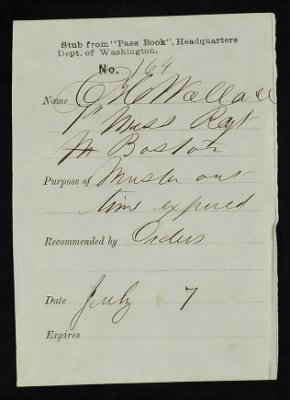 Stub from "Pass Book", Headquarters
Dept. of Washington.
No. 164
Name C H C Wallace
1st Mass Regt
To Boston
Purpose of Muster out
time expired
Recommended by Orders
Date July 7
Expires